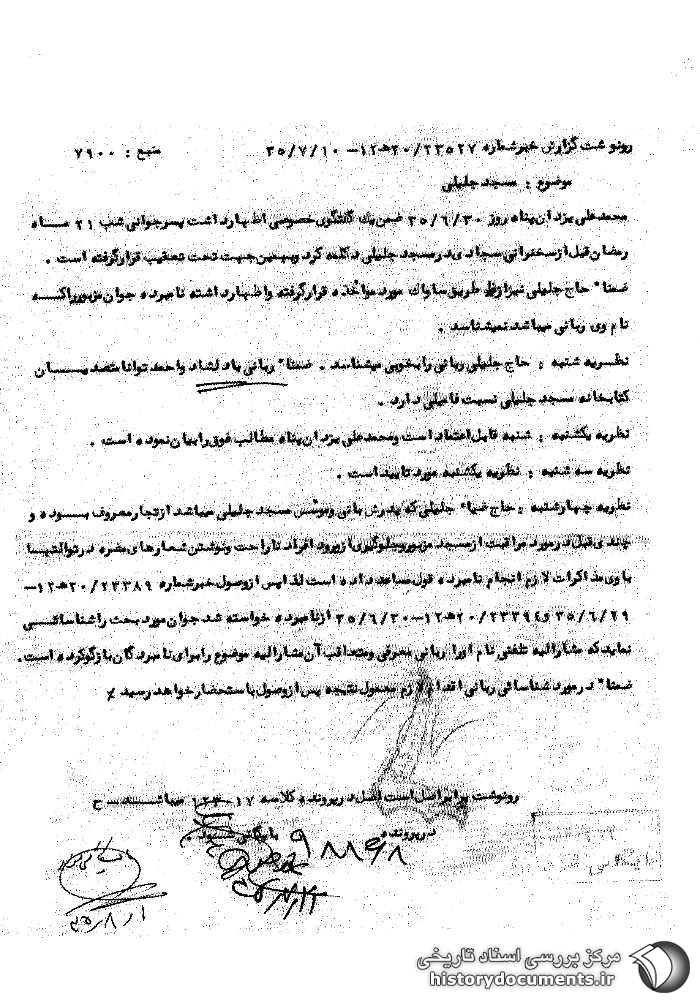 رونوشت گزارش خبر شماره ۲۳۵۲۷/۲۰ه‍۱۲ – ۳۵/۷/۱۰ منبع : ۷۹۰۰
موضوع : مسجد جلیلی
محمدعلی یزدان پناه روز ۳۵/۶/۳۰ ضمن یک گفتگوی خصوصی اظهار داشت پسر جوانی شب ۲۱ مـــاه
رمضان قبل از سخنرانی سجادی در مسجد جلیلی دکلمه کرد و بهمین جهت تحت تعقیب قرار گرفته است .
ضمنا" حاج جلیلی نیز از طریق ساواک مورد مواخذه قرار گرفته و اظهار داشته نامبرده جوان مزبور را کـــه
نام وی ربانی میباشد نمیشناسد .
نظــریه شنبه : حاج جلیلی ربانی را بخوبی میشناسد . ضمنا" ربانی با دلشاد واحد توانا متصدیـــــان
کتابخانه مسجد جلیلی نسبت فامیلی دارد .
نظریه یکشنبه : شنبه قابل اعتماد است و محمدعلی یزدان پناه مطالب فوق را بیان نموده است .
نظریه سه شنبه : نظریه یکشنبه مورد تایید است .
نظریه چهارشنبه : حاج ضیاء جلیلی که پدرش بانی و موسس مسجد جلیلی میباشد از تجار معروف بـــوده و
چندی قبل در مورد مراقبت از مسجد مزبور و جلوگیری از ورود افراد ناراحت و نوشتن شعارهای مضره در توالتهـــا
با وی مذاکرات لازم انجام نامبرده قول مساعد داده است لذا پس از وصول خبر شماره ۲۳۳۸۹/۲۰ه‍۱۲–
۳۵/۶/۲۹ و ۲۳۳۹۴/۲۰ه‍۱۲–۳۵/۶/۳۰ از نامبرده خواسته شد جوان مورد بحث را شناسائـــی
نماید که مشارالیه تلفنی نام او را ربانی معرفی و متعاقب آن مشارالیه موضوع را برای نامبردگان بازگو کرده است.
ضمنا" در مورد شناسائی ربانی اقدام لازم معمول نتیجه پس از وصول باستحضار خواهد رسید
رونوشت برابر اصل است اصل در پرونده کلاسه میباشــد – ح
در پرونده ۹۸۸۶۸ بایگانی شود .
مرکز بررسی اسناد تاریخی
historydocuments.ir